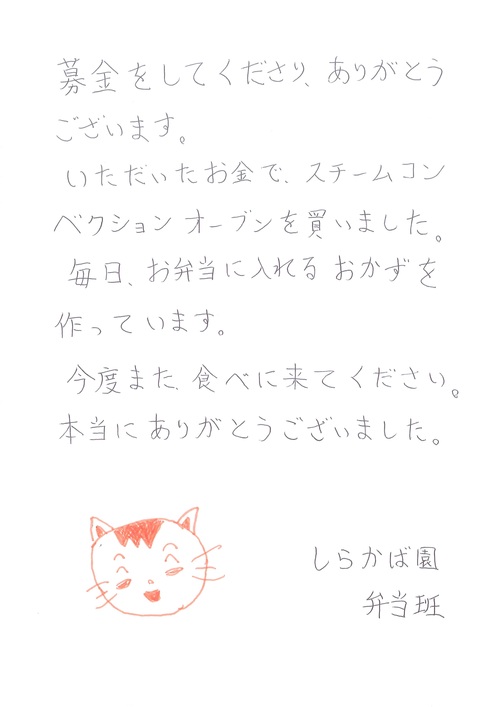 募金をしてくださり、ありがとう
ございます。
いただいたお金で、スチームコン
ベクションオーブンを買いました。
毎日、お弁当に入れるおかずを
作っています。
今度また、食べに来てください。
本当にありがとうございました。
しらかば園
弁当班